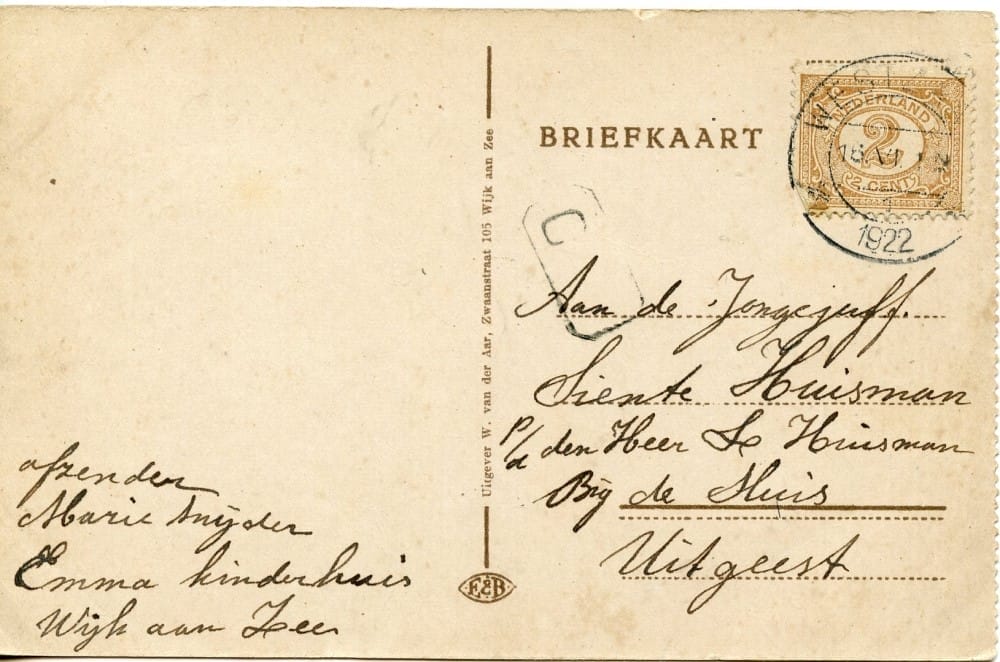 BRIEFKAART
NEDERLAND
2
2 CENT
WEST
1922
C
Aan de Jongejuff.
Siente Huisman
p/a den Heer S Huisman
Bij de Sluis
Uitgeest
afzender
Marie Snijder
Emma kinderhuis
Wijk aan Zee
Uitgever W. van der Aar, Zwaanstraat 105 Wijk aan Zee
E&B